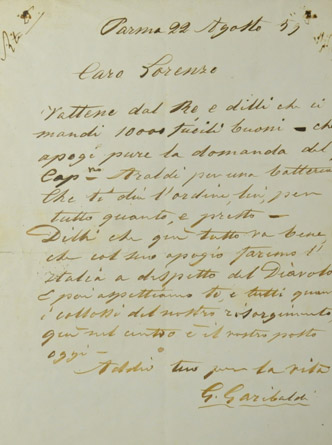 Parma 22 Agosto 59
Caro Lorenzo
Vattene dal Re e dilli che ci
mandi 10000 fucili buoni - che
apogi pure la domanda del
Cap.no Araldi per una batteria
Che ti dia l'ordine, lui, per
tutto quanto, e presto -
Dilli che quì tutto va bene
che col suo apogio faremo l'
Italia a dispetto del Diavolo
E poi aspettiamo te, e tutti quanti
i colossi del nostro risorgimento
quì nel centro è il vostro posto
oggi -
Addio tuo per la vita
G. Garibaldi